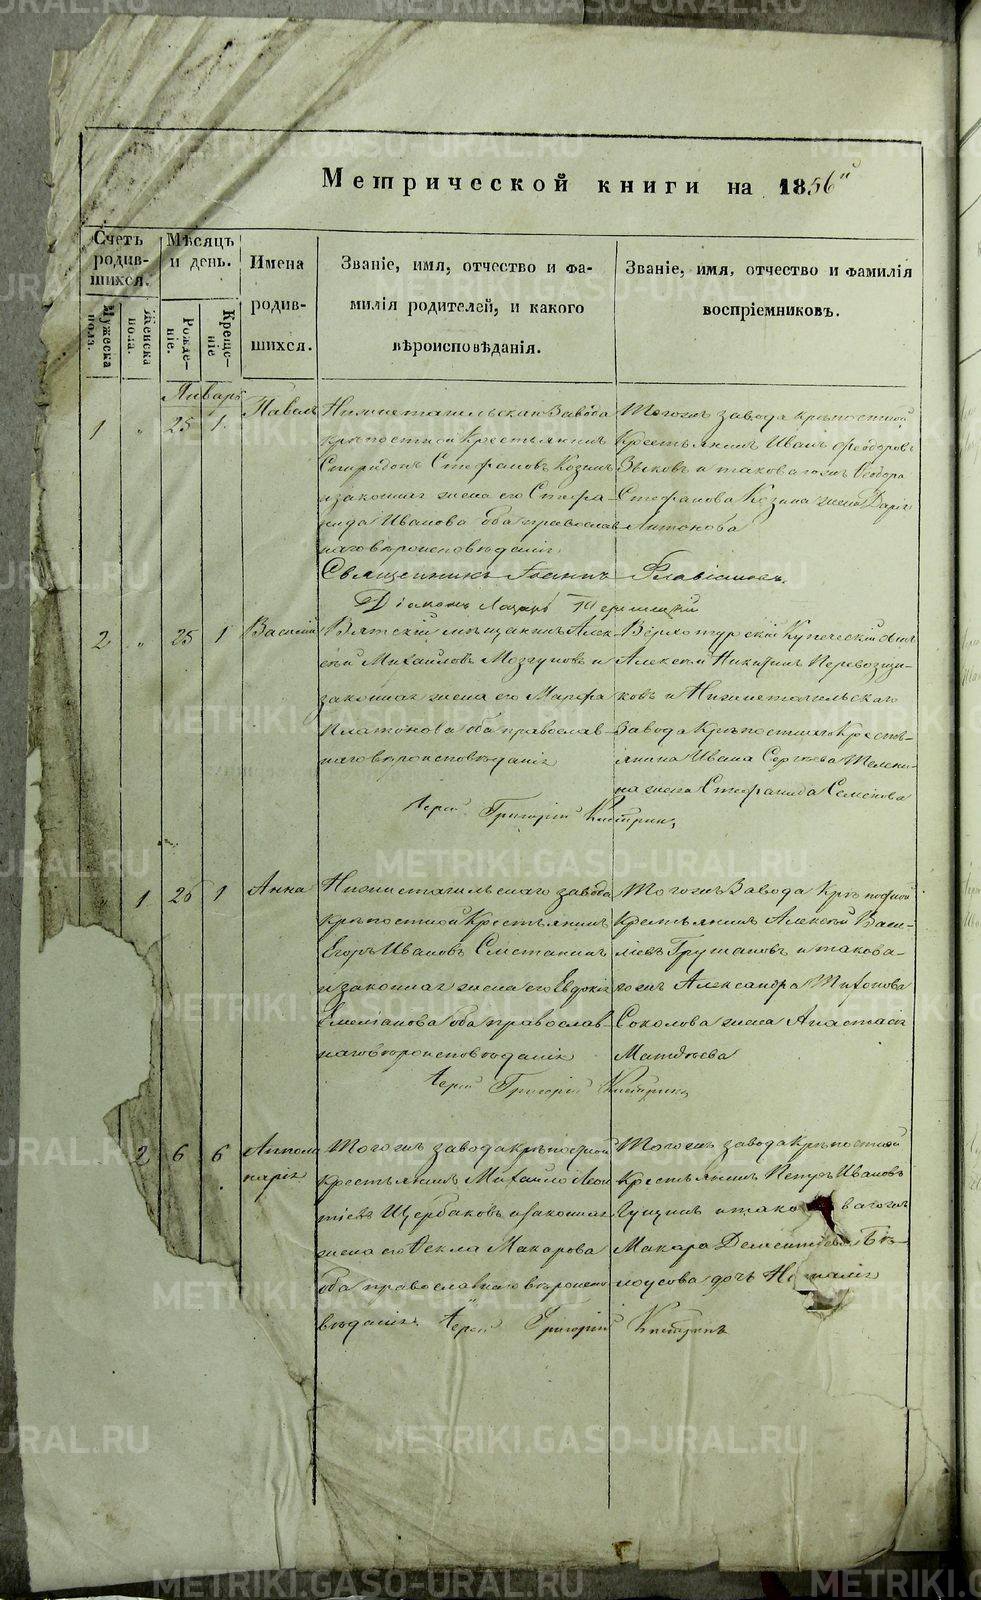 Метрической книги на 1856й
Счетъ родившихся.
Мужеска пола.
Женска пола.
Мѣсяцъ и день.
Рожденіе.
Крещеніе
Имена родившихся.
Званіе, имя, отчество и фамилія родителей, и какого вѣроисповѣданія.
Званіе, имя, отчество и фамилія воспріемниковъ.
Январь
1 " 25 1. Павелъ
Нижнетагильскаго Завода
крѣпостной Крестьянинъ
Спиридонъ Стефановъ Козинъ
и законная жена его Стефа-
нида Иванова оба православ
наго вѣроисповѣданія
Тогожъ завода крѣпостной
Крестьянинъ Иванъ Феодоровъ
Зыковъ и таковагожъ Феодора
Стефанова Козина жена Дарія
Антонова
Священникъ Іоаннъ Флавіановъ.
Діаконъ Лазарь
2 " 25 1 Василій
Вятскій мѣщанинъ Алек
сѣй Михайловъ Мозгуновъ и
законная жена его Марфа
Платонова оба православ-
наго вѣроисповѣданія
Верхотурскій Купеческій сынъ
Алексѣй Никитинъ Перевощи-
ковъ и Нижнетагильскаго
Завода Крѣпостнаго Кресть-
янина Ивана Сергѣева Теленки-
на жена Стефанида Семенова
Іерей Григорій
1 26 1 Анна
Нижнетагильскаго завода
крѣпостной Крестьянинъ
Егоръ Ивановъ Сметанинъ
и законная жена его Евдокія
Емеліанова оба православ-
наго вѣроисповѣданія
Тогожъ Завода Крѣпостной
Крестьянинъ Алексѣй Васи-
ліевъ Грушановъ и такова-
гожъ Александра Тихонова
Соколова жена Анастасія
Матвѣева
Іерей Григорій
2 6 6 Апполи
нарія
Тогожъ завода крѣпостной
крестьянинъ Михайло Леон
тіевъ Щербаковъ и законная
жена его Фекла Макарова
оба православнаго вѣроиспо
вѣданія.
Тогожъ завода Крѣпостной
Крестьянинъ Петръ Ивановъ
Гущинъ и тако вагожъ
Макара Дементіева Бѣ-
лоусова дочь Наталія
Іерей Григорій
METRIKI.GASO-URAL.RU